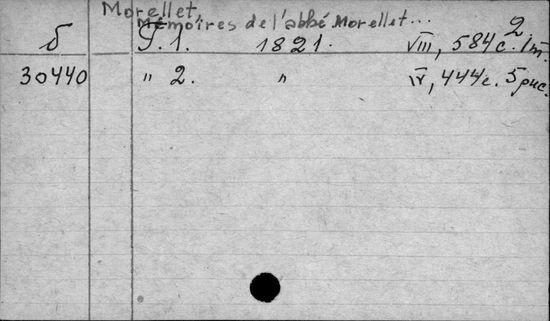 Morellet,
Mémoires de l'abbé Morellet... 2
б T. 1. 1821. VIII, 584 c. 1 п.
30440 " 2. " IV, 444 c. 5 рис.